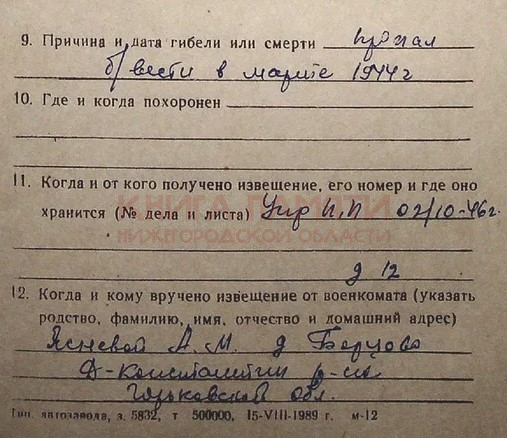 9. Причина и дата гибели или смерти пропал
б/вести в марте 1944 г
10. Где и когда похоронен
11. Когда и от кого получено извещение, его номер и где оно
КНИГА ПАМЯТИ
хранится (№ дела и листа) Упр 02/10-46г.
НИЖЕГОРОДСКОЙ ОБЛАСТИ
д 12
12. Когда и кому вручено извещение от военкомата (указать
родство, фамилию, имя, отчество и домашний адрес)
Ясневой А. М. д
Д-Константин р-на
Горьковской обл.
Тип. автозавода, з. 5832, т 500000, 15-VIII-1989 г. м-12